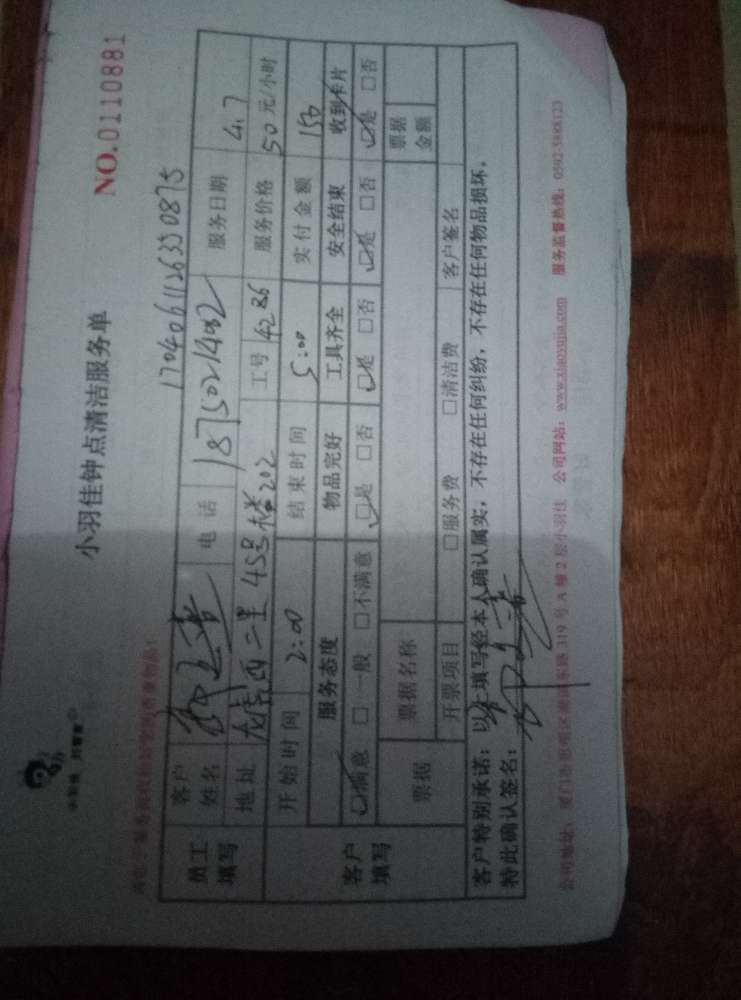 小羽佳钟点清洁服务单
NO.0110881
17040611263350875
员工填写
客户姓名
电话 18750221402
服务日期 4.7
地址 龙虎西二里45号 202
工号 4286
服务价格 50元/小时
客户填写
开始时间 2:00
结束时间 5:00
实付金额 150
服务态度 物品完好 工具齐全 安全结束 收到卡片
☑满意 □一般 □不满意 ☑是 □否 ☑是 □否 ☑是 □否 ☑是 □否
票据 票据名称 票据金额
开票项目 □服务费 □清洁费 客户签名
客户特别承诺：以上填写经本人确认属实，不存在任何纠纷，不存在任何物品损坏，
特此确认签名：
公司网站：www.xiaoyujia.com 服务监督热线：0592-5888123